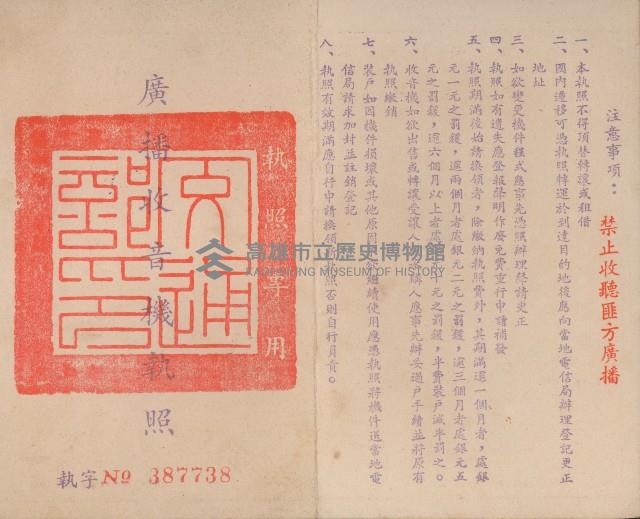 注意事項：
禁止收聽匪方廣播
一、本執照不得頂替轉讓或租借
二、國內遷移可憑執照轉運於到達目的地後應向當地電信局辦理登記更正
地址
三、如欲變更機件程式應事先憑照辦理登請更正
四、執照如有遺失應登報聲明作廢免費重行申請補發
五、執照期滿後始請換領者，除繳納執照費外，其期滿逾一個月者，處銀
元一元之罰鍰，逾兩個月者處銀元二元之罰鍰，逾三個月者處銀元五
元之罰鍰，逾六個月以上者處 元十元之罰鍰，半費裝戶減半罰之。
六、收音機如欲出售或轉讓受讓人 購人應事先辦妥過戶手續並將原有
執照繳銷
七、裝戶如因機件損壞或其他原因 繼續使用應憑執照將機件送當地電
信局請求加封並註銷登記
八、執照有效期滿應自行申請換領新執照否則自行負責。
廣播收音機執照
執照專用
交通
部印
執字 № 387738
高雄市立歷史博物館
KAOHSIUNG MUSEUM OF HISTORY